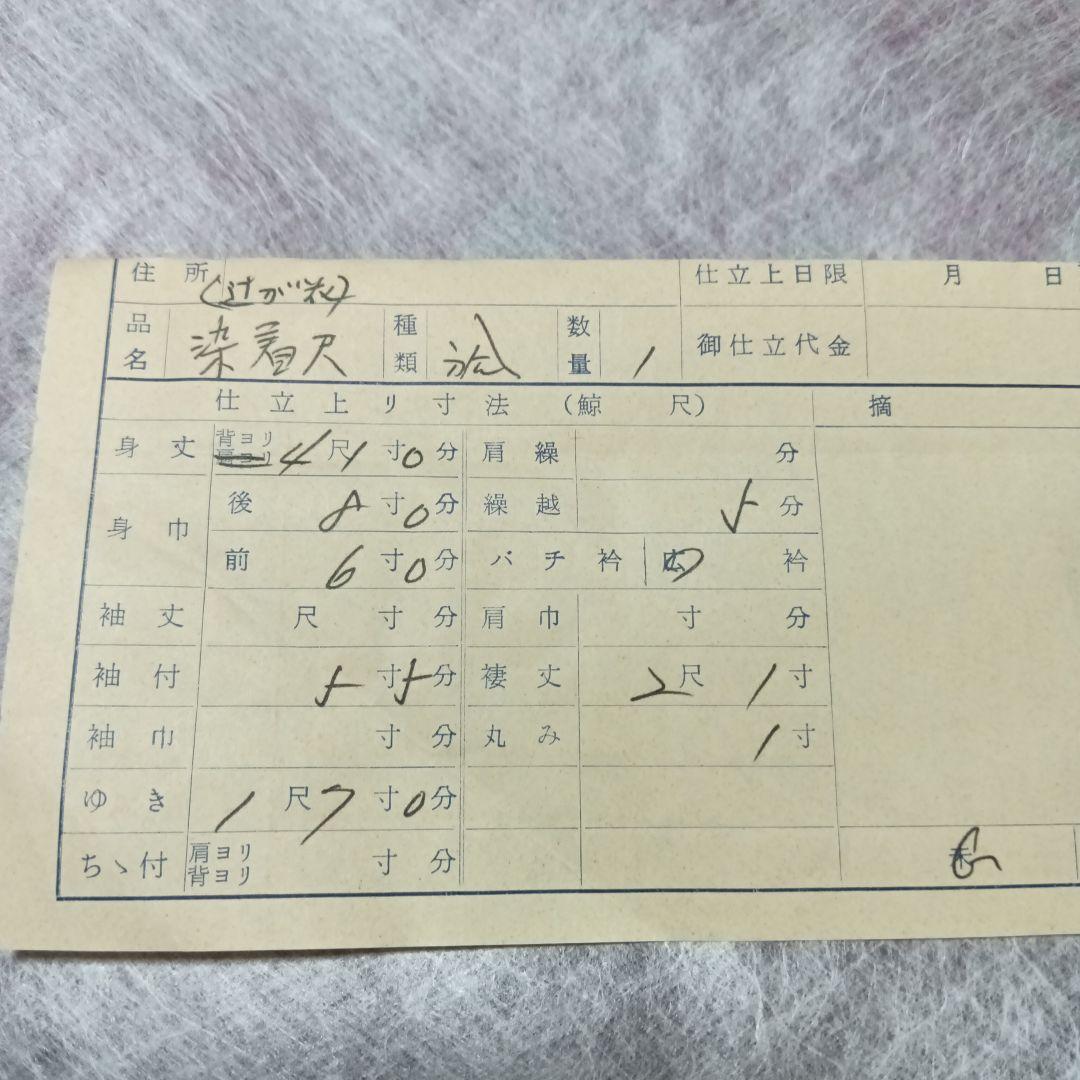 住所 仕立上日限 月 日
(辻が花)
品名 染着尺 種類 袷 数量 1 御仕立代金
仕立上り寸法 (鯨尺) 摘
身丈 背ヨリ 肩ヨリ 4尺1寸0分 肩繰 分
身巾 後 8寸0分 繰越 5分
前 6寸0分 バチ衿 広 衿
袖丈 尺 寸 分 肩巾 寸 分
袖付 5寸5分 褄丈 2尺1寸
袖巾 寸 分 丸み 1寸
ゆき 1尺7寸0分
ちゝ付 肩ヨリ 背ヨリ 寸 分